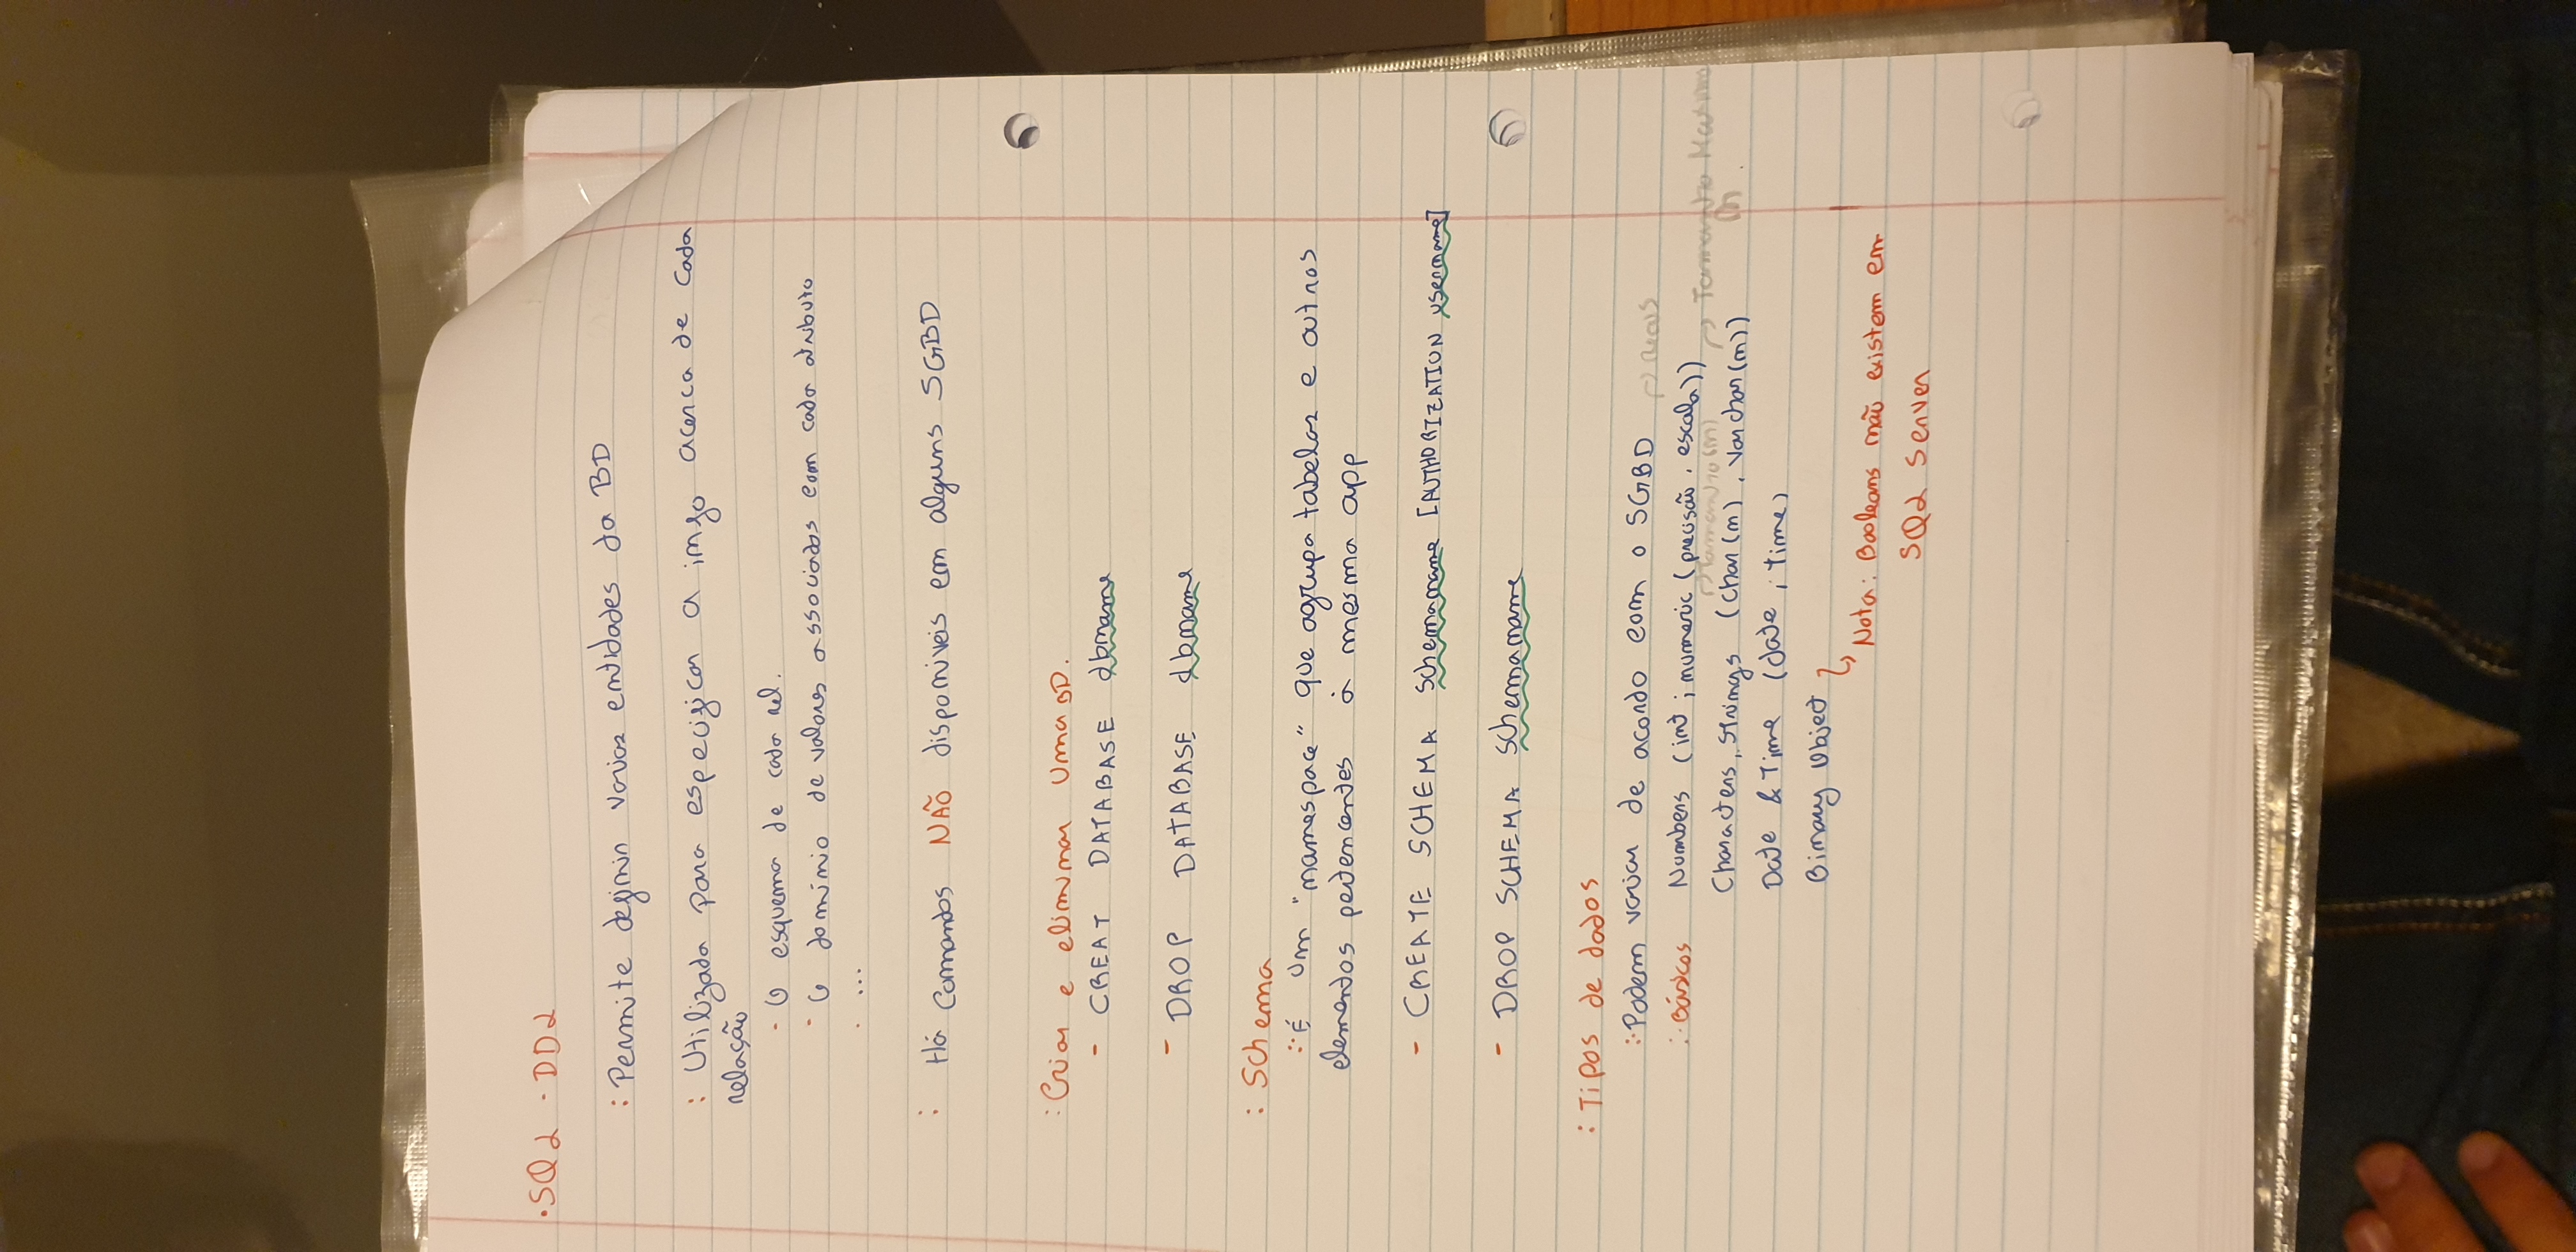 ·SQL - DDL
: Permite definir varias entidades da BD
: Utilizada para especificar a info acerca de cada
relação
- O esquema de cada rel.
- O domínio de valores associados com cada atributo
- ...
: Há Comandos NÃO disponiveis em alguns SGBD
: Criar e eliminar uma BD.
- CREAT DATABASE dbname
- DROP DATABASE dbname
: Schema
:· É um "namespace" que agrupa tabelas e outros
elementos pertencentes à mesma app
- CREATE SCHEMA schemaname [AUTHORIZATION username]
- DROP SCHEMA schemaname
: Tipos de dados
:· Podem variar de acordo com o SGBD
↱ reais
:· Básicos Numbers (int ; numeric (precisão, escala))
↱ Tamanho (n) ↱ Tamanho Maximo
n
Characters, Strings (char(n), varchar(n))
Date & Time (date ; time)
Binary Object
↳ Nota: Booleans não existem em
SQL Server